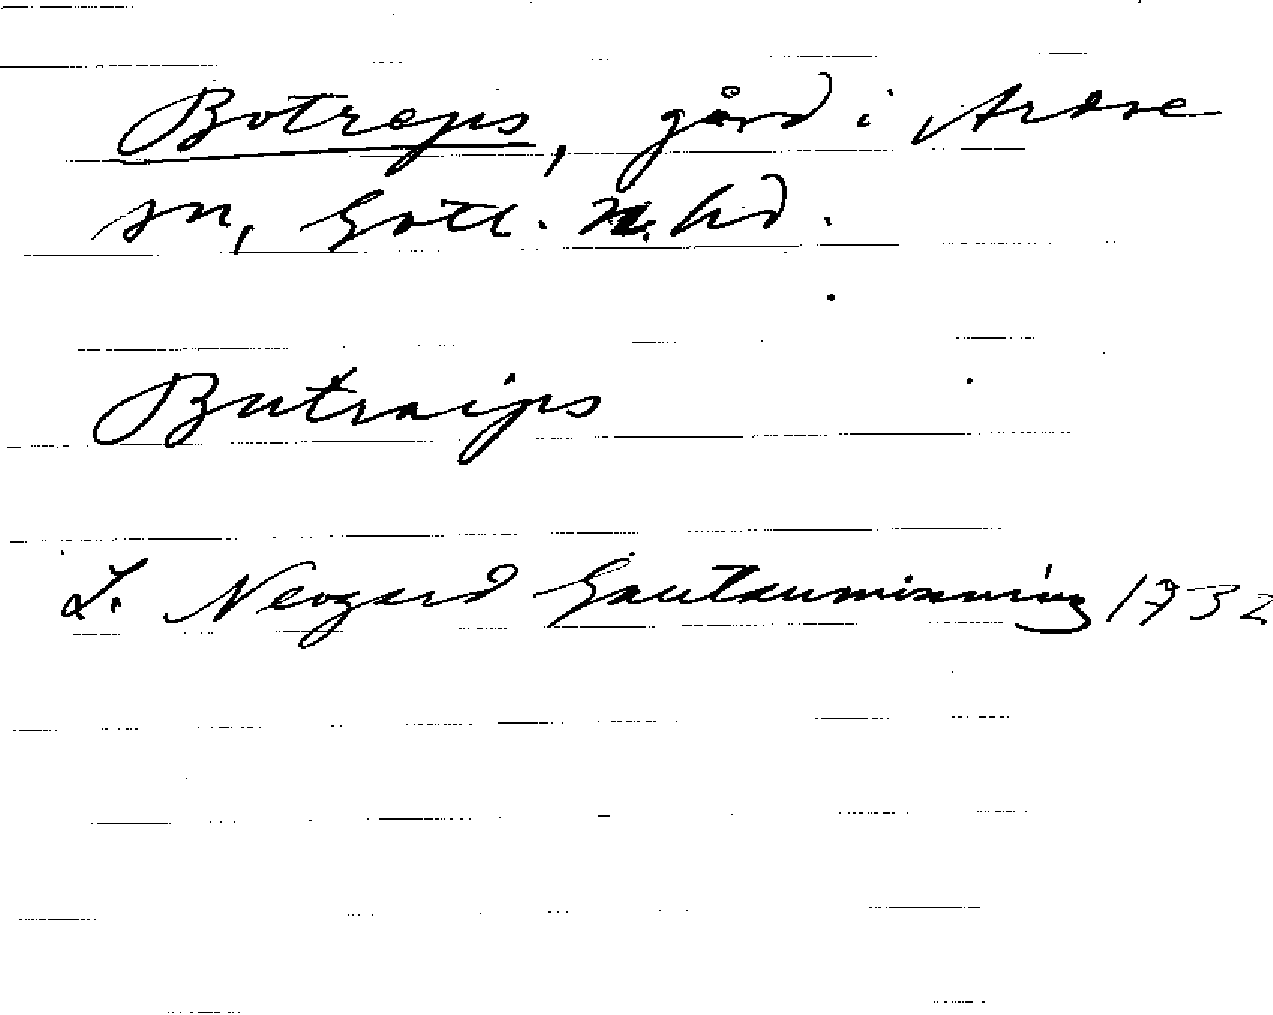 Botreps, gård i Ardre
sn, Gotl. n. hd.
Butraips
L. Neogard Gautauminning 1732